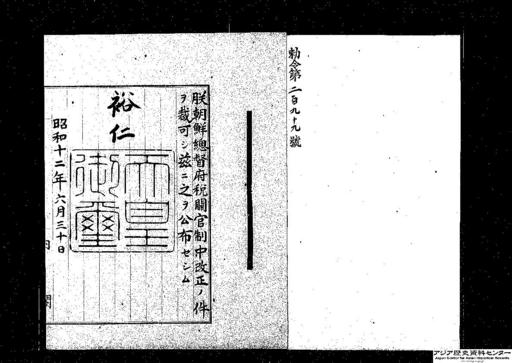 勅令第二百九十九號
朕朝鮮總督府税關官制中改正ノ件
ヲ裁可シ茲ニ之ヲ公布セシム
裕仁
天皇
御璽
昭和十二年六月三十日
アジア歴史資料センター
Japan Center for Asian Historical Records